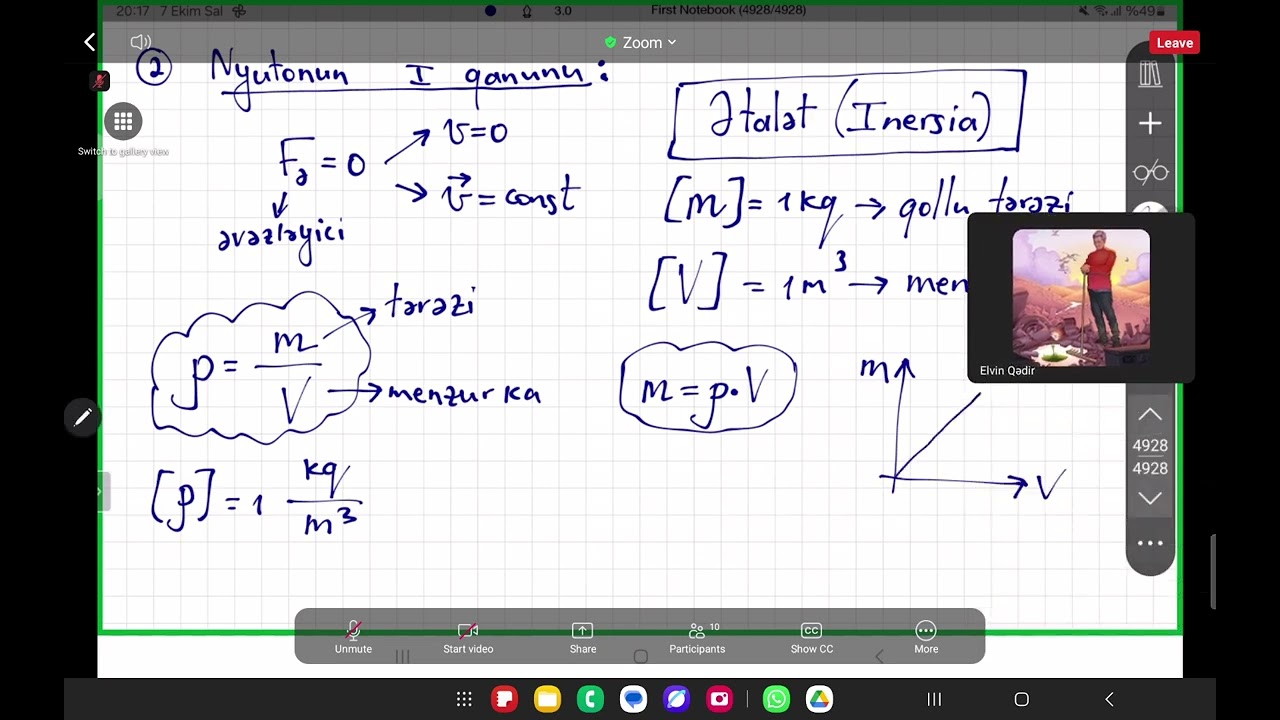 20:17 7 Ekim Sal
3.0
First Notebook (4928/4928)
%49
Zoom
Leave
Switch to gallery view
② Nyutonun I qanunu:
Fə = 0
v=0
v⃗ = const
əvəzləyici
Ətalət (Inersia)
[m] = 1kq → qollu tərəzi
[V] = 1m³ → men
ρ = m/V
tərəzi
menzurka
[ρ] = 1 kq/m³
m = ρ·V
m
V
Elvin Qədir
4928
4928
Unmute
Start video
Share
Participants 10
CC
Show CC
More